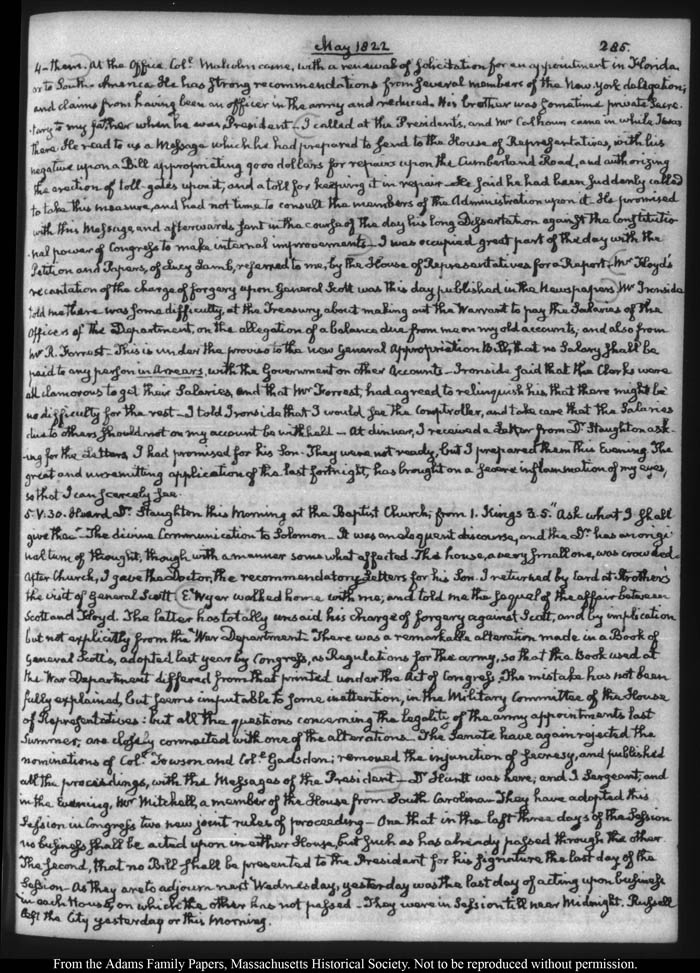 May 1822
285.
4 - them. At the Office Col.l Malcolm came, with a renewal of solicitation for an appointment in Florida
or to South-America. He has strong recommendations from several members of the New York delegation;
and claims from having been an officer in the army and reduced. His brother was sometime private Secre-
tary to my father when he was President — I called at the Presidents, and Mr Calhoun came in while I was
there. He read to us a Message which he had prepared to send to the House of Representatives, with his
negative upon a Bill appropriating 9000 dollars for repairs upon the Cumberland Road, and authorizing
the erection of toll-gates upon it, and a toll for keeping it in repair — He said he had been suddenly called
to take this measure, and had not time to consult the members of the Administration upon it. He promised
with this Message, and afterwards sent in the course of the day his long Dissertation against the Constitutio-
nal power of Congress to make internal improvements — I was occupied great part of the day with the
Petition and Papers, of Lucy Lamb, referred to me, by the House of Representatives for a Report. Mr Floyd's
recantation of the charge of forgery upon General Scott was this day published in the Newspapers. Mr Ironside
told me there was some difficulty, at the Treasury, about making out the Warrant to pay the Salaries of the
Officers of the Department, on the allegation of a balance due from me on my old accounts, and also from
Mr R. Forrest — This is under the proviso to the new General Appropriation Bill, that no Salary shall be
paid to any person in Arrears, with the Government on other Accounts — Ironside said that the Clerks were
all clamorous to get their Salaries, and that Mr Forrest, had agreed to relinquish his that there might be
no difficulty for the rest — I told Ironside that I would see the Comptroller, and take care that the Salaries
due to others should not on my account be withheld — At dinner, I received a Letter from Dr Staughton ask-
ing for the Letters, I had promised for his Son. They were not ready, but I prepared them this Evening. The
great and unremitting application of the last fortnight, has brought on a severe inflammation of my eyes,
so that I can scarcely see.
5. V:30. Heard Dr. Staughton this Morning at the Baptist Church; from 1. Kings 3. 5. "Ask what I shall
give thee" — The divine Communication to Solomon — It was an eloquent discourse, and the Dr. has an origi-
nal turn of thought, though with a manner somewhat affected. The house, a very small one, was crowded —
After Church, I gave the Doctor, the recommendatory Letters for his Son. I returned by Card at Strother's
the visit of General Scott. E. Wyer walked home with me; and told me the sequel of the affair between
Scott and Floyd. The latter has totally unsaid his charge of forgery against Scott, and by implication
but not explicitly from the War Department. There was a remarkable alteration made in a Book of
General Scott's, adopted last year by Congress, as Regulations for the army, so that the Book used at
the War Department differed from that printed under the Act of Congress. The mistake has not been
fully explained, but seems imputable to some inattention, in the Military Committee of the House
of Representatives: but all the questions concerning the legality of the army appointments last
Summer, are closely connected with one of the alterations — The Senate have again rejected the
nominations of Col.l Towson and Col.l Gadsden; removed the injunction of secresy, and published
all the proceedings, with the Messages of the President — Dr Huntt was here; and J Sergeant, and
in the Evening, Mr Mitchell, a member of the House from South Carolina — They have adopted this
Session in Congress two new joint rules of proceeding — One that in the last three days of the Session
no business shall be acted upon in either House, but such as has already passed through the other
The second, that no Bill shall be presented to the President for his signature the last day of the
Session — As they are to adjourn next Wednesday, yesterday was the last day of acting upon business
in each House, on which the other has not passed — They were in Session till near Midnight. Russell
left the City yesterday or this Morning.
From the Adams Family Papers, Massachusetts Historical Society. Not to be reproduced without permission.